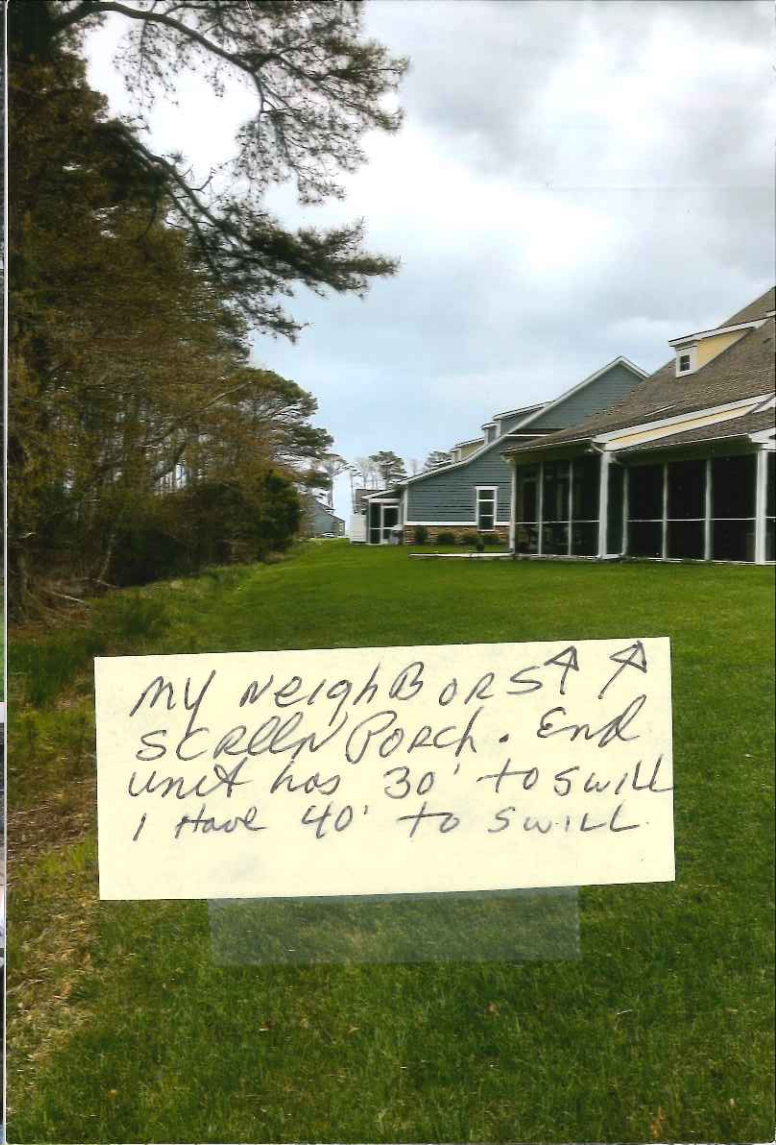 MY NeighBORS ↑ ↑
SCREEN PORCH. End
unit has 30' to SWILL
I Have 40' to SWILL.